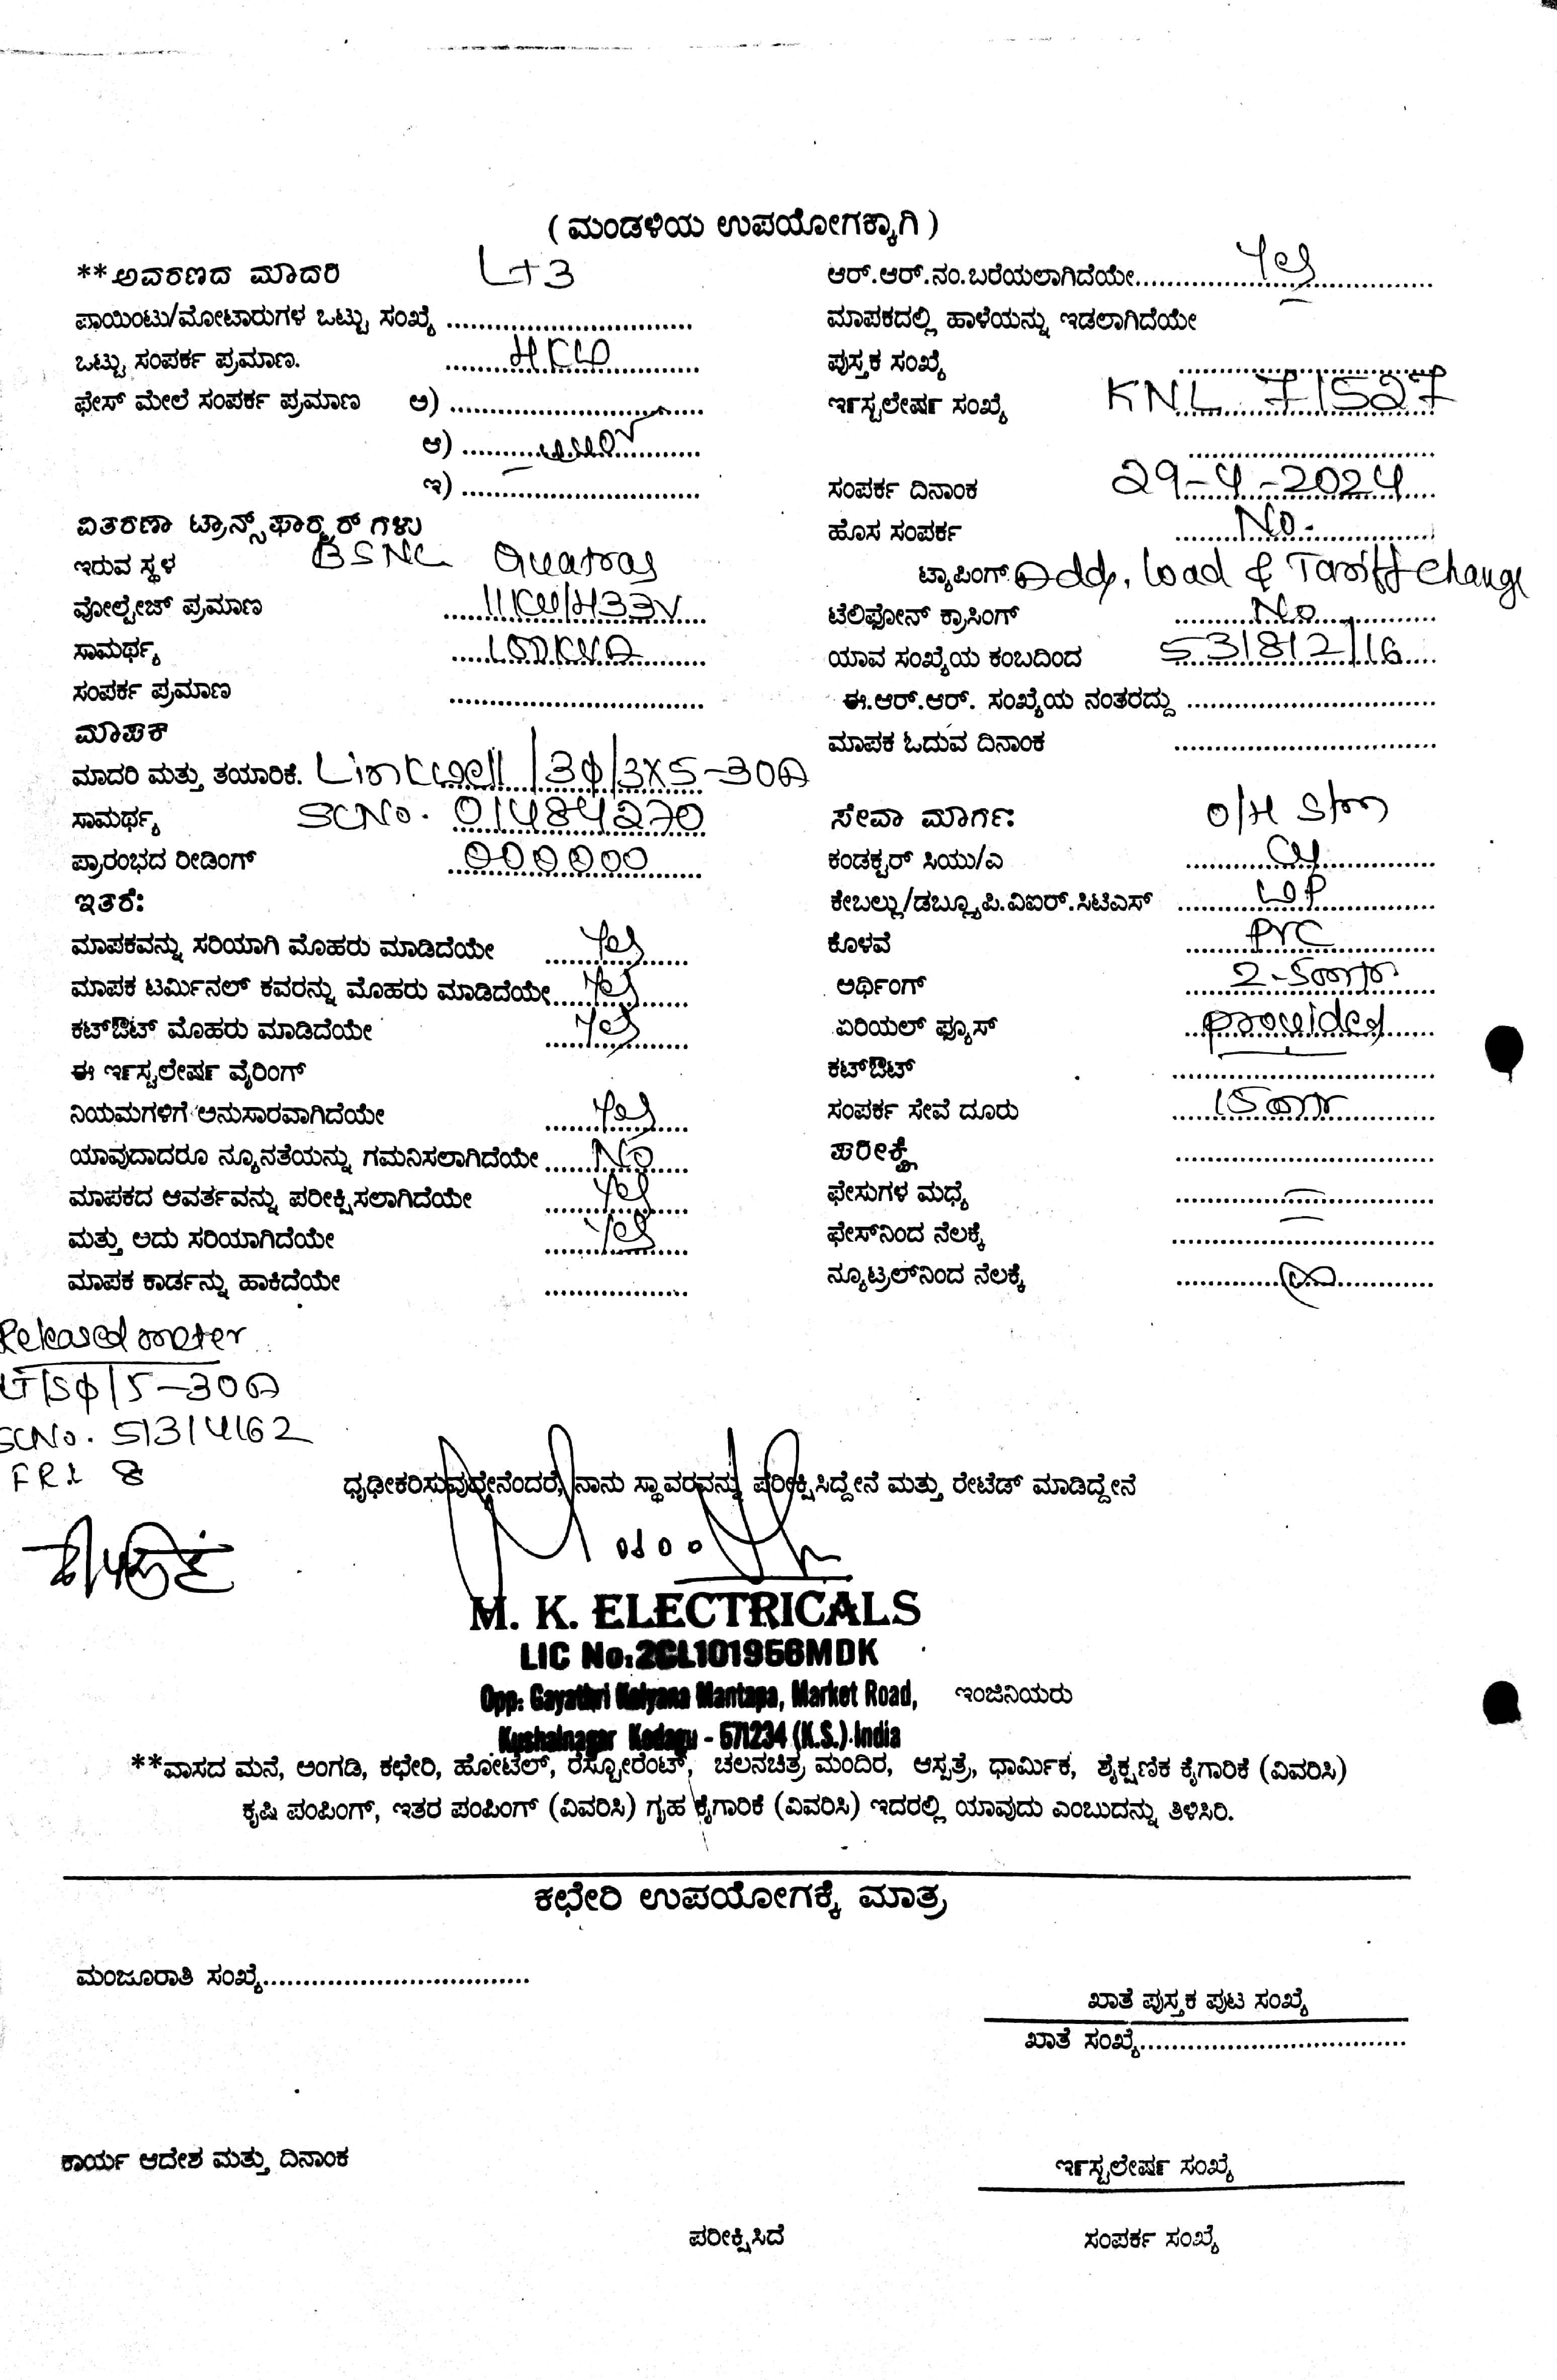 ( ಮಂಡಳಿಯ ಉಪಯೋಗಕ್ಕಾಗಿ )
**ಅವರಣದ ಮಾದರಿ LT3
ಪಾಯಿಂಟು/ಮೋಟಾರುಗಳ ಒಟ್ಟು ಸಂಖ್ಯೆ ..............................
ಒಟ್ಟು ಸಂಪರ್ಕ ಪ್ರಮಾಣ.
ಫೇಸ್ ಮೇಲೆ ಸಂಪರ್ಕ ಪ್ರಮಾಣ ಅ) ..............................
ಆ) ..............................
ಇ) ..............................
ವಿತರಣಾ ಟ್ರಾನ್ಸ್‌ಫಾರ್ಮರ್ ಗಳು
ಇರುವ ಸ್ಥಳ BSNL Quatras
ವೋಲ್ಟೇಜ್ ಪ್ರಮಾಣ 11KV/433V
ಸಾಮರ್ಥ್ಯ 100KVA
ಸಂಪರ್ಕ ಪ್ರಮಾಣ ..............................
ಮಾಪಕ
ಮಾದರಿ ಮತ್ತು ತಯಾರಿಕೆ. Linkwell/3ϕ/3X5-30A
ಸಾಮರ್ಥ್ಯ SCNo. 01484270
ಪ್ರಾರಂಭದ ರೀಡಿಂಗ್ 000000
ಇತರೆ:
ಮಾಪಕವನ್ನು ಸರಿಯಾಗಿ ಮೊಹರು ಮಾಡಿದೆಯೇ Yes
ಮಾಪಕ ಟರ್ಮಿನಲ್ ಕವರನ್ನು ಮೊಹರು ಮಾಡಿದೆಯೇ Yes
ಕಟ್‌ಔಟ್ ಮೊಹರು ಮಾಡಿದೆಯೇ Yes
ಈ ಇನ್ಸ್ಟಲೇಷನ್ ವೈರಿಂಗ್
ನಿಯಮಗಳಿಗೆ ಅನುಸಾರವಾಗಿದೆಯೇ Yes
ಯಾವುದಾದರೂ ನ್ಯೂನತೆಯನ್ನು ಗಮನಿಸಲಾಗಿದೆಯೇ No
ಮಾಪಕದ ಆವರ್ತವನ್ನು ಪರೀಕ್ಷಿಸಲಾಗಿದೆಯೇ Yes
ಮತ್ತು ಅದು ಸರಿಯಾಗಿದೆಯೇ Yes
ಮಾಪಕ ಕಾರ್ಡನ್ನು ಹಾಕಿದೆಯೇ ..................
Released meter
LT/Sϕ/5-30A
SCNo. 51314162
FRL 8
ಆರ್.ಆರ್.ನಂ.ಬರೆಯಲಾಗಿದೆಯೇ Yes
ಮಾಪಕದಲ್ಲಿ ಹಾಳೆಯನ್ನು ಇಡಲಾಗಿದೆಯೇ
ಪುಸ್ತಕ ಸಂಖ್ಯೆ ..............................
ಇನ್ಸ್ಟಲೇಷನ್ ಸಂಖ್ಯೆ KNL 71527
ಸಂಪರ್ಕ ದಿನಾಂಕ 29-4-2024
ಹೊಸ ಸಂಪರ್ಕ No.
ಟ್ಯಾಪಿಂಗ್ Addl, load & Tariff change
ಟೆಲಿಫೋನ್ ಕ್ರಾಸಿಂಗ್ No
ಯಾವ ಸಂಖ್ಯೆಯ ಕಂಬದಿಂದ 531812/16
ಈ.ಆರ್.ಆರ್. ಸಂಖ್ಯೆಯ ನಂತರದ್ದು ..............................
ಮಾಪಕ ಓದುವ ದಿನಾಂಕ ..............................
ಸೇವಾ ಮಾರ್ಗ: O/H
ಕಂಡಕ್ಟರ್ ಸಿಯು/ಎ Cu
ಕೇಬಲ್ಲು/ಡಬ್ಲ್ಯೂಪಿ.ವಿಐರ್.ಸಿಟಿಎಸ್ WP
ಕೊಳವೆ PVC
ಅರ್ಥಿಂಗ್
ಏರಿಯಲ್ ಫ್ಯೂಸ್ provided
ಕಟ್‌ಔಟ್ ..............................
ಸಂಪರ್ಕ ಸೇವೆ ದೂರು 15 mtr
ಪರೀಕ್ಷೆ ..............................
ಫೇಸುಗಳ ಮಧ್ಯೆ
ಫೇಸ್‌ನಿಂದ ನೆಲಕ್ಕೆ ..............................
ನ್ಯೂಟ್ರಲ್‌ನಿಂದ ನೆಲಕ್ಕೆ
ಧೃಢೀಕರಿಸುವುದೇನೆಂದರೆ, ನಾನು ಸ್ಥಾವರವನ್ನು ಪರೀಕ್ಷಿಸಿದ್ದೇನೆ ಮತ್ತು ರೇಟೆಡ್ ಮಾಡಿದ್ದೇನೆ
M. K. ELECTRICALS
LIC No:2CL101956MDK
Opp: Gayathri Kalyana Mantapa, Market Road, ಇಂಜಿನಿಯರು
Kushalnagar Kodagu - 571234 (K.S.) India
**ವಾಸದ ಮನೆ, ಅಂಗಡಿ, ಕಛೇರಿ, ಹೋಟೆಲ್, ರೆಸ್ಟೋರೆಂಟ್, ಚಲನಚಿತ್ರ ಮಂದಿರ, ಆಸ್ಪತ್ರೆ, ಧಾರ್ಮಿಕ, ಶೈಕ್ಷಣಿಕ ಕೈಗಾರಿಕೆ (ವಿವರಿಸಿ)
ಕೃಷಿ ಪಂಪಿಂಗ್, ಇತರ ಪಂಪಿಂಗ್ (ವಿವರಿಸಿ) ಗೃಹ ಕೈಗಾರಿಕೆ (ವಿವರಿಸಿ) ಇದರಲ್ಲಿ ಯಾವುದು ಎಂಬುದನ್ನು ತಿಳಿಸಿರಿ.
ಕಛೇರಿ ಉಪಯೋಗಕ್ಕೆ ಮಾತ್ರ
ಮಂಜೂರಾತಿ ಸಂಖ್ಯೆ..............................
ಖಾತೆ ಪುಸ್ತಕ ಪುಟ ಸಂಖ್ಯೆ
ಖಾತೆ ಸಂಖ್ಯೆ..............................
ಕಾರ್ಯ ಆದೇಶ ಮತ್ತು ದಿನಾಂಕ
ಇನ್ಸ್ಟಲೇಷನ್ ಸಂಖ್ಯೆ
ಪರೀಕ್ಷಿಸಿದೆ
ಸಂಪರ್ಕ ಸಂಖ್ಯೆ